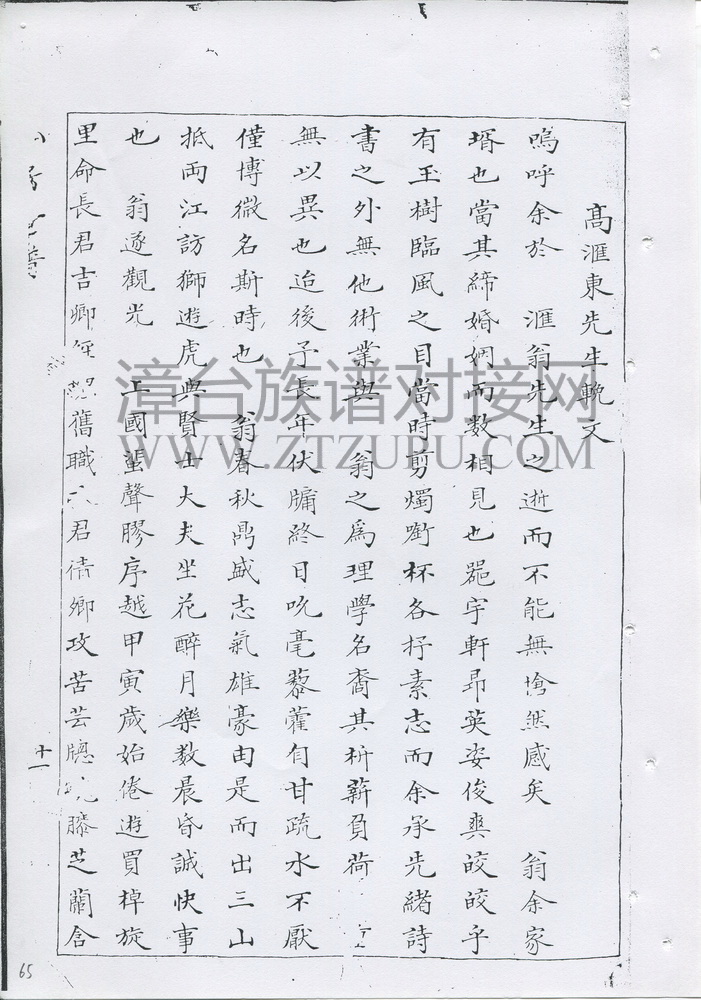 高滙東先生輓文
嗚呼余於　滙翁先生之逝而不能無愴然感矣　翁余家
壻也當其締婚姻而数相見也噐宇軒昂英姿俊爽皎皎乎
有玉樹臨風之目當時剪燭啣杯各抒素志而余承先緒詩
書之外無他術業與　翁之爲理學名裔其析薪負荷
無以異也迨後予長年伏牗終日吮毫藜藿自甘疏水不厭
僅博微名斯時也　翁春秋鼎盛志氣雄豪由是而出三山
抵両江訪獅遊虎與賢士大夫坐花醉月樂数晨昏誠快事
也　翁遂觀光　上國蜚聲膠序越甲寅歲始倦遊買棹旋
里命長君吉卿舊職君倩卿攻苦芸牕膝芝蘭含
十一
65
漳台族谱对接网
WWW.ZTZUPU.COM